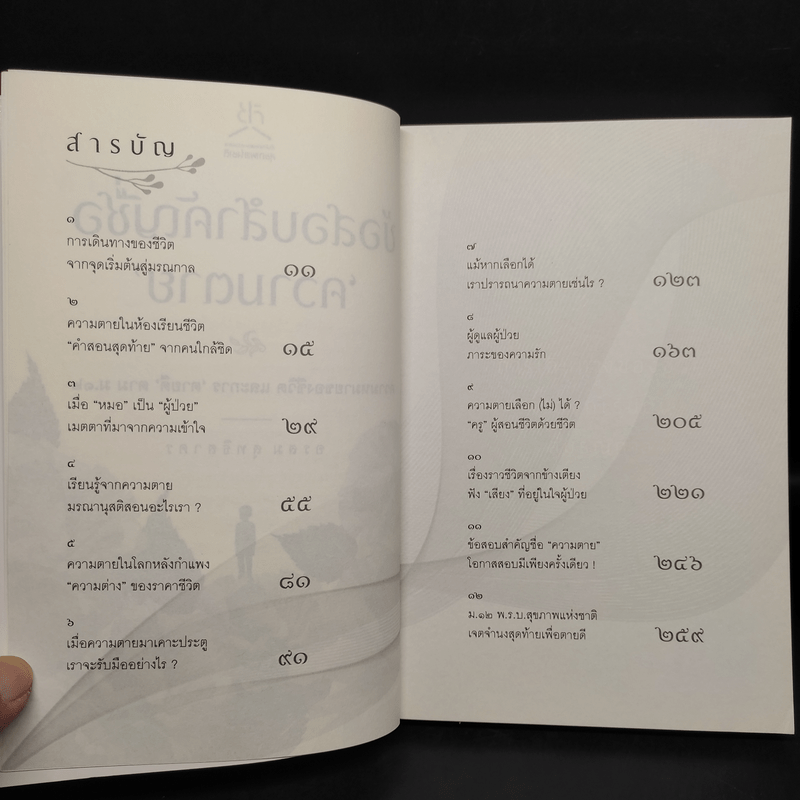 สารบัญ
๑
การเดินทางของชีวิต
จากจุดเริ่มต้นสู่มรณกาล ๑๑
๒
ความตายในห้องเรียนชีวิต
“คำสอนสุดท้าย” จากคนใกล้ชิด ๑๕
๓
เมื่อ “หมอ” เป็น “ผู้ป่วย”
เมตตาที่มาจากความเข้าใจ ๒๙
๔
เรียนรู้จากความตาย
มรณานุสติสอนอะไรเรา ? ๕๕
๕
ความตายในโลกหลังกำแพง
“ความต่าง” ของราคาชีวิต ๘๑
๖
เมื่อความตายมาเคาะประตู
เราจะรับมืออย่างไร ? ๙๑
๗
แม้หากเลือกได้
เราปรารถนาความตายเช่นไร ? ๑๒๓
๘
ผู้ดูแลผู้ป่วย
ภาระของความรัก ๑๖๓
๙
ความตายเลือก (ไม่) ได้ ?
“ครู” ผู้สอนชีวิตด้วยชีวิต ๒๐๕
๑๐
เรื่องราวชีวิตจากข้างเตียง
ฟัง “เสียง” ที่อยู่ในใจผู้ป่วย ๒๒๑
๑๑
ข้อสอบสำคัญชื่อ “ความตาย”
โอกาสสอบมีเพียงครั้งเดียว ! ๒๔๖
๑๒
ม.๑๒ พ.ร.บ.สุขภาพแห่งชาติ
เจตจำนงสุดท้ายเพื่อตายดี ๒๕๙